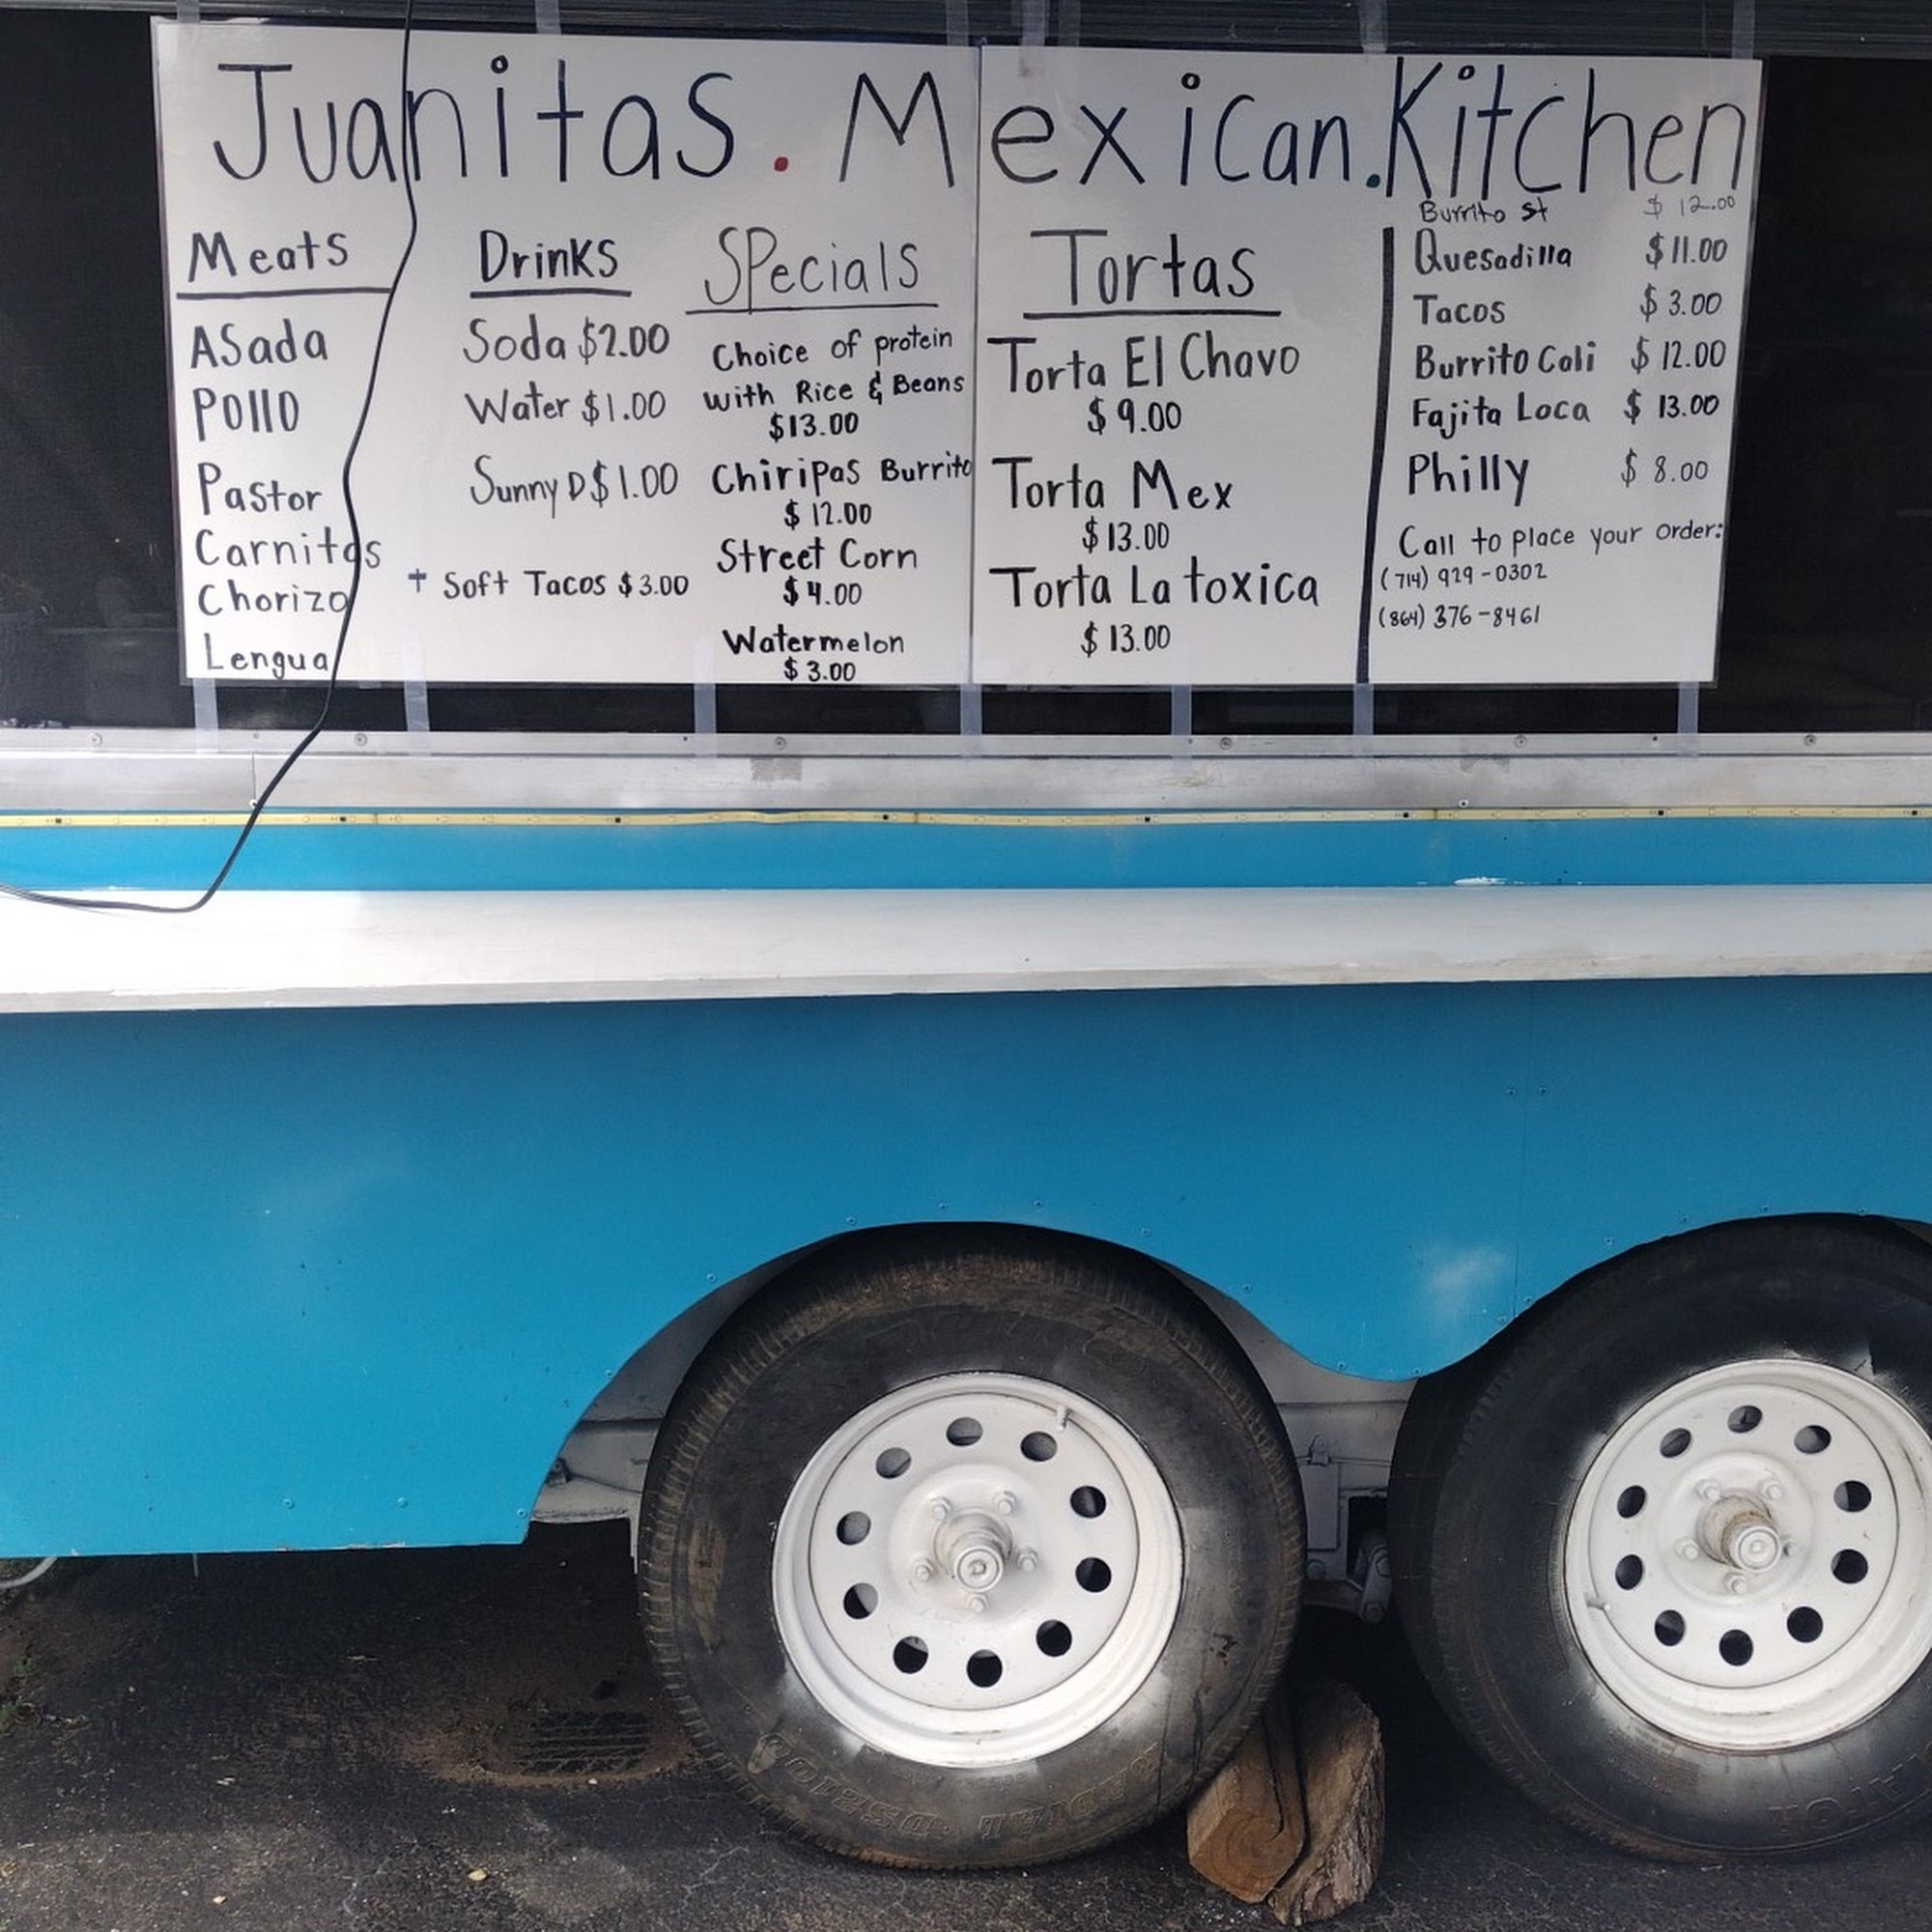 Juanitas. Mexican. Kitchen
Meats
Asada
Pollo
Pastor
Carnitas
Chorizo
Lengua
Drinks
Soda $2.00
Water $1.00
Sunny D $1.00
+ Soft Tacos $3.00
Specials
Choice of protein
with Rice & Beans
$13.00
Chiripas Burrito
$12.00
Street Corn
$4.00
Watermelon
$3.00
Tortas
Torta El Chavo
$9.00
Torta Mex
$13.00
Torta La toxica
$13.00
Burrito st $12.00
Quesadilla $11.00
Tacos $3.00
Burrito Cali $12.00
Fajita Loca $13.00
Philly $8.00
Call to place your order:
(714) 929-0302
(864) 376-8461